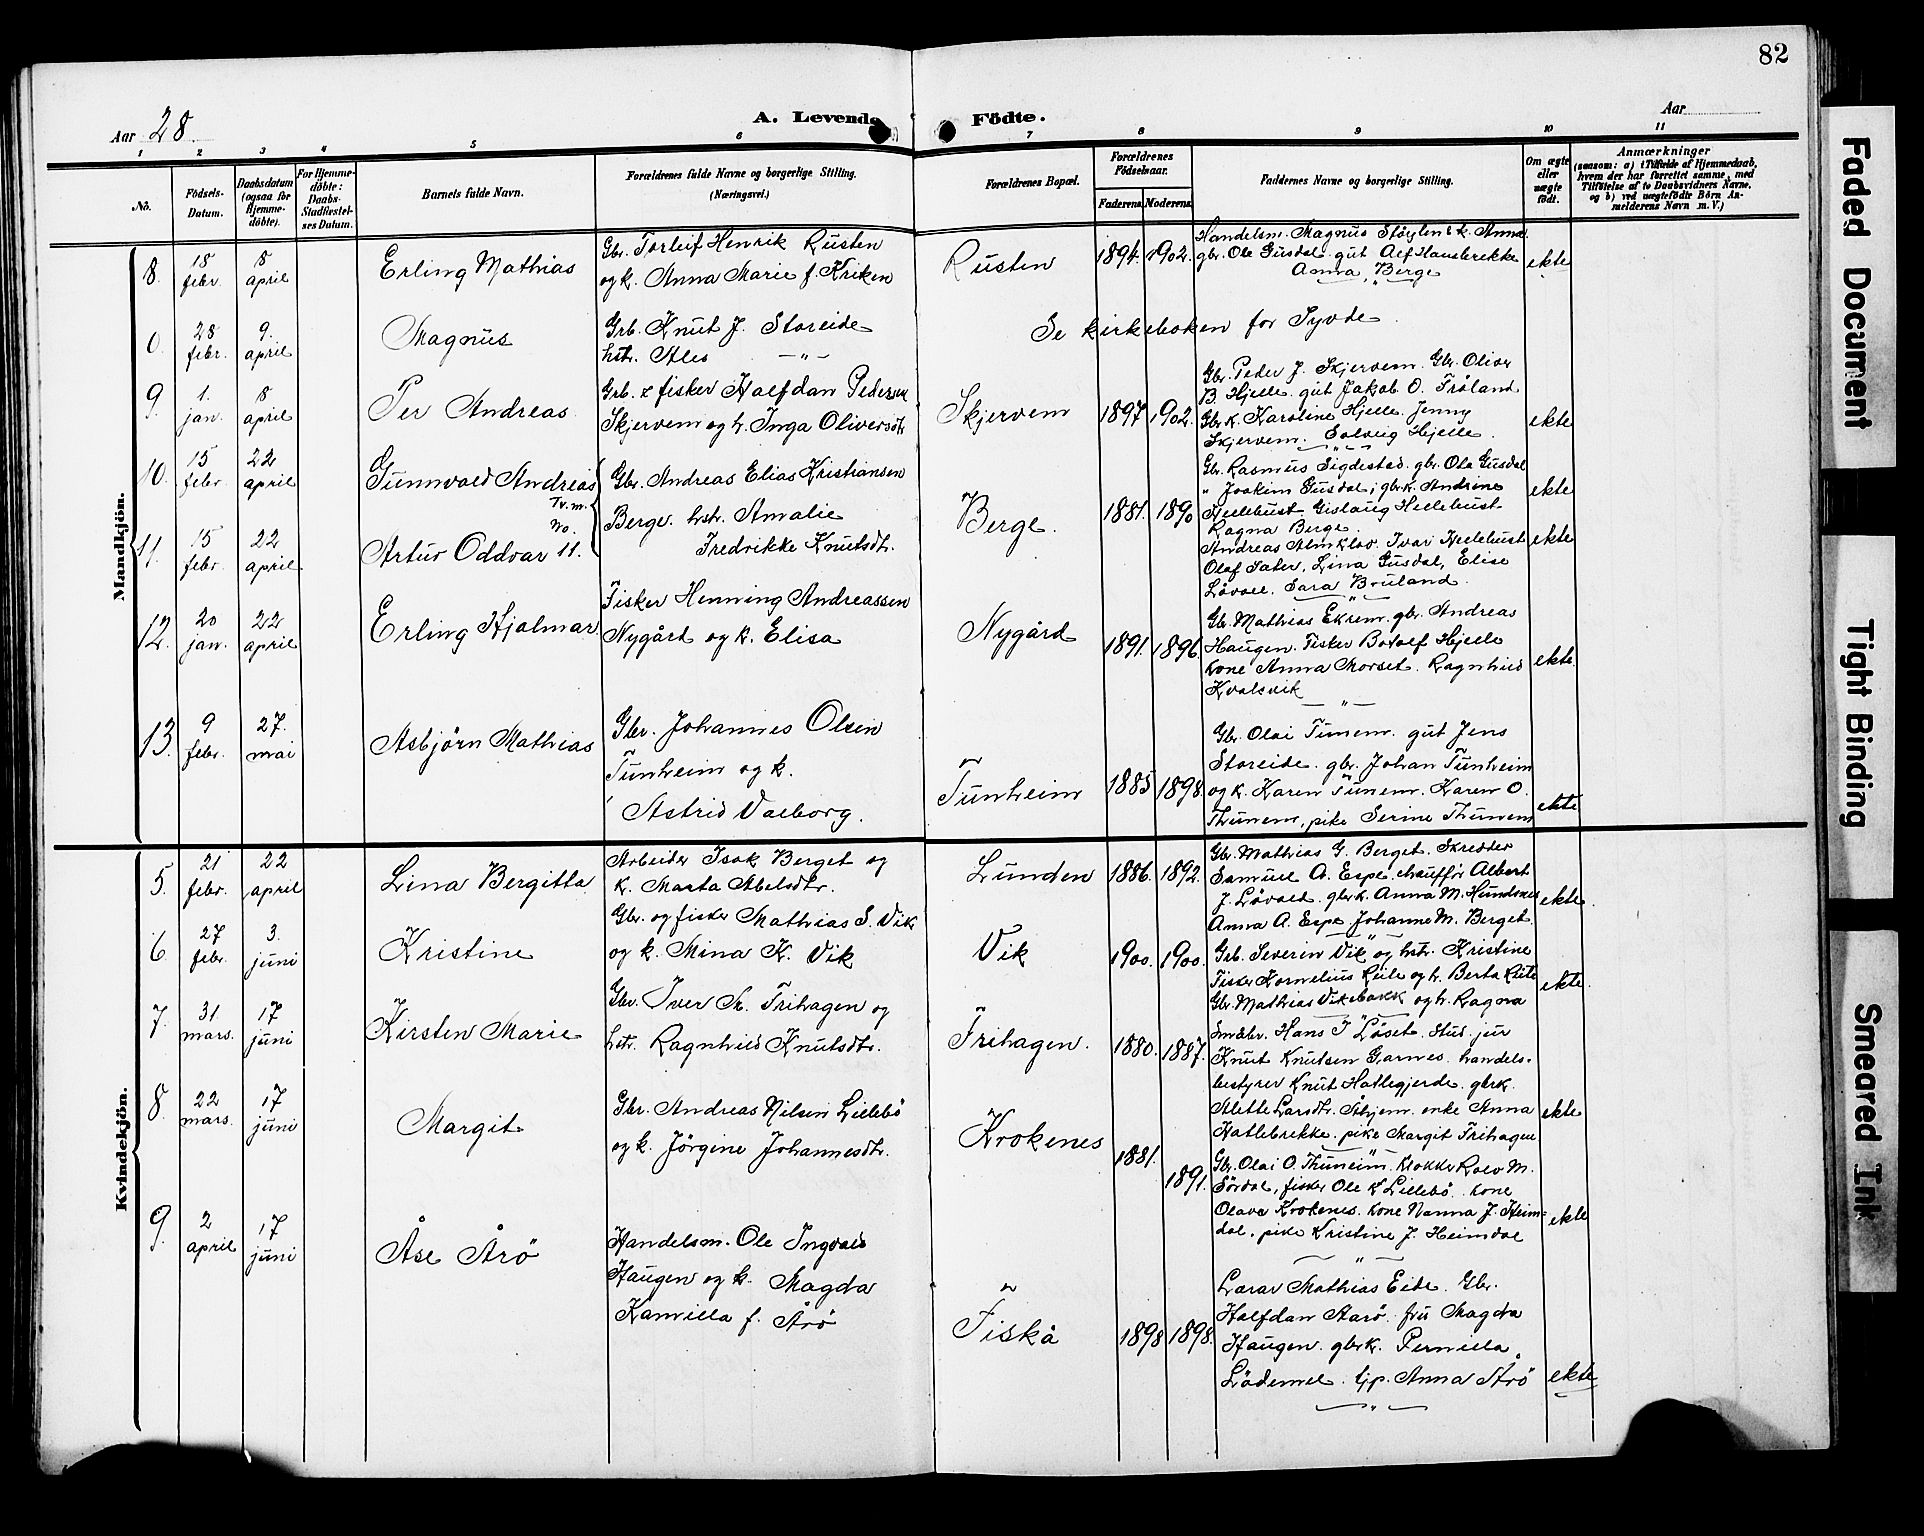 82
Aar 28
A. Levende Födte.
Aar
1 2 3 4 5 6 7 8 9 10 11
No.
Födsels-Datum.
Daabsdatum (ogsaa for Hjemme-döbte).
For Hjemme-döbte: Daabs-Stadfæstel-ses Datum.
Barnets fulde Navn.
Forældrenes fulde Navne og borgerlige Stilling. (Næringsvei.)
Forældrenes Bopæl.
Forældrenes Födselsaar.
Faderens. Moderens.
Faddernes Navne og borgerlige Stilling.
Om ægte eller uægte födt.
Anmærkninger
(saasom: a) i Tilfælde af Hjemmedaab,
hvem der har forrettet samme, med
Tilföielse af to Daabsvidners Navne,
og b) ved uægtefödte Börn An-
melderens Navn m. V.)
Mandkjön.
8. 18 febr. 8 april
Erling Mathias
Gbr. Torleif Henrik Rusten
og k. Anna Marie f. Kriken
Rusten 1894. 1902.
Handelsm. Magnus Stöylen & k. Anna
gbr. Ole Gusdal. gut Alf Hauslrekke
Anna Berge
ekte
0. 28 febr. 9. april
Magnus
Grb. Knut J. Storeide
hstr. Ales —"—
Se kirkeboken for Syvde.
9. 1. jan. 8 april
Per Andreas
Grb. & fisker Halfdan Pedersen
Skjervem og h. Inga Oliversdtr
Skjervem 1897 1902.
Gbr. Peder J. Skjervem. Gbr. Oliver
B. Hjelle. gut Jakob O. Fröland
Gbr k. Karoline Hjelle. Jenny
Skjervem. Solveig Hjelle.
ekte
10. 15 febr. 22 april
Gunnvald Andreas
Tv. m. No.
11. 15 febr. 22 april
Artur Oddvar 11.
Gbr. Andreas Elias Kristiansen
Berge. hstr. Amalie
Fredrikke Knutsdtr.
Berge. 1881. 1890
Gbr. Rasmus Sigdestad. gbr. Ole Gusdal
" Joakim Gusdal; gbr k. Andrine
Hellebust Gislaug Hellebust
Ragna Berge.
ekte
Andreas Almklov. Ivar Hellebust
Olaf Sater, Lina Gusdal, Elise
Lövoll. Sara Bruland.
ekte
12. 20 jan. 22 april
Erling Hjalmar
Fisker Henning Andreassen
Nygård og k. Elisa
Nygård 1891. 1896.
Gbr. Mathias Ekrem. gbr. Andreas
Haugen. Fisker Botolf Hjelle
kone Anna Morset. Ragnhild
Kvalsvik
ekte.
13. 9 febr. 27. mai
Asbjörn Mathias
Gbr. Johannes Olsen
Tunheim og k.
Astrid Valborg.
Tunheim 1885 1898.
Gbr. Olai Tunem. gut Jens
Storeide. gbr. Johan Tunheim
og k. Karen Tunem. Karen O.
Thunem, pike Serine Thunem
ekte
Kvindekjön.
5. 21 febr. 22 april
Lina Bergitta
Arbeider Isak Berget og
k. Marta Abelsdtr.
Lunden 1886. 1892.
Gbr. Mathias G. Berget. Skredder
Samuel A. Espe. chauffør Albert
J. Lövold. gbr k. Anna M. Hundsnes
Anna A. Espe Johanne M. Berget.
ekte.
6. 27 febr. 3. juni
Kristine
Gbr. og fisker Mathias S. Vik
og k. Mina K. Vik
Vik 1900. 1900.
Grb. Severin Vik og hstr. Kristine
Fisker Kornelius Reite og h. Berta Reite
Gbr. Mathias Vikebakk og h. Ragna
ekte.
7. 31 mars. 17 juni
Kirsten Marie
Gbr. Iver M. Frihagen og
hstr. Ragnhild Knutsdtr.
Frihagen. 1880. 1887.
Småbr. Hans J Löset. Stud. jur
Knut Knutsen Garnes. handels-
bestyrer Knut Hatlegjerde. gbrk.
Alette Larsdtr. Åhjem. enke Anna
Hatlebrekke. pike Margit Frihagen
ekte
8. 22 mars. 17 juni
Margit
Gbr. Andreas Nilsen Lillebö
og k. Jörgine Johannesdtr.
Krokenes 1881. 1891.
Gbr. Olai O. Thuneim. klokker Rolv M.
Sördal, fisker Ole K Lillebö. kone
Olava Krokenes. kone Nanna J. Heim-
dal. pike Kristine J. Heimdal
ekte
9. 2 april 17 juni
Åse Årö
Handelsm. Ole Ingvald
Haugen og k. Magda
Kamilla f. Årö
Fiskå 1898 1898.
Lærar Mathias Eide. Gbr.
Halfdan Aarö. fru Magda
Haugen. gbrk. Pernilla
Lödemel. tjp. Anna Årö
ekte
Faded Document
Tight Binding
Smeared Ink